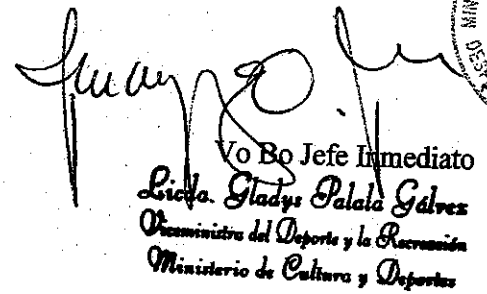 Vo Bo Jefe Inmediato
Licda. Gladys Palala Gálvez
Viceministra del Deporte y la Recreación
Ministerio de Cultura y Deportes